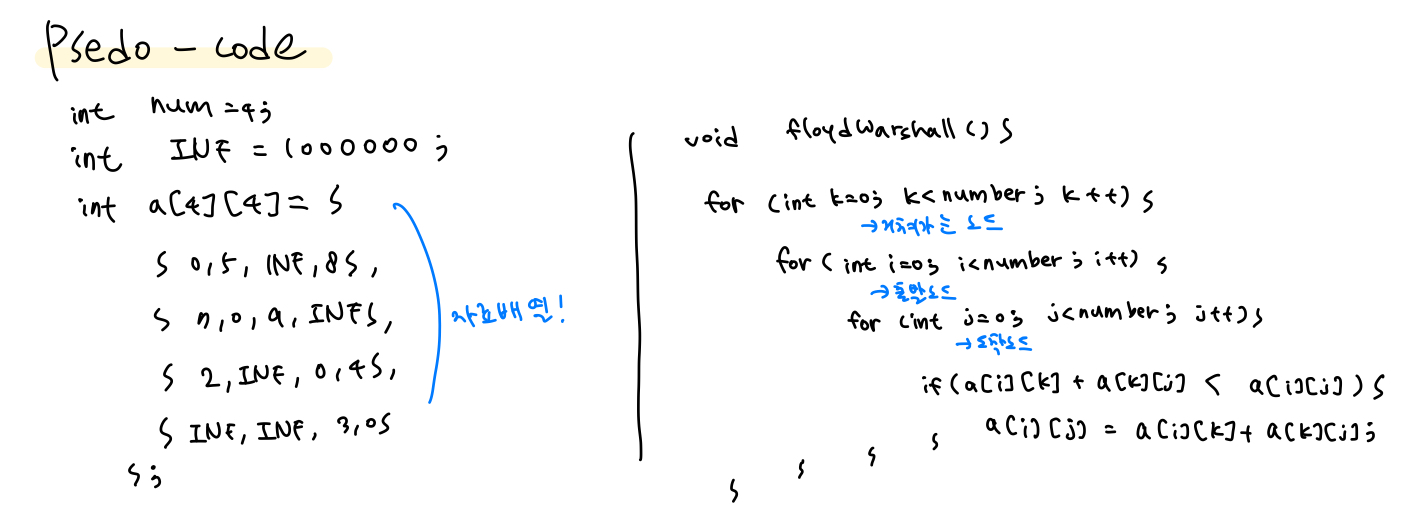 Psedo - code
int num = 4;
int INF = 1000000;
int a[4][4] = {
{ 0, 5, INF, 8},
{ 7, 0, 9, INF},
{ 2, INF, 0, 4},
{ INF, INF, 3, 0}
};
자료배열!
void floydWarshall() {
for (int k=0; k<number; k++) {
→거쳐가는 노드
for (int i=0; i<number; i++) {
→출발노드
for (int j=0; j<number; j++) {
→도착노드
if (a[i][k] + a[k][j] < a[i][j]) {
a[i][j] = a[i][k] + a[k][j];
}
}
}
}